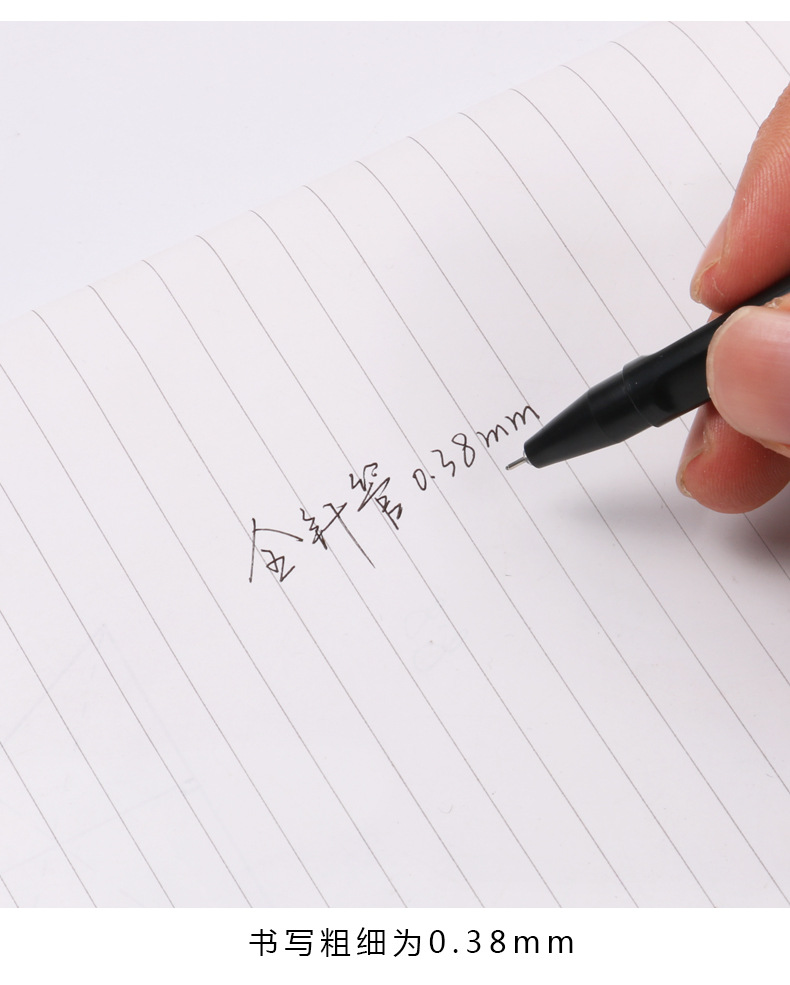 全针管0.38mm
书写粗细为0.38mm